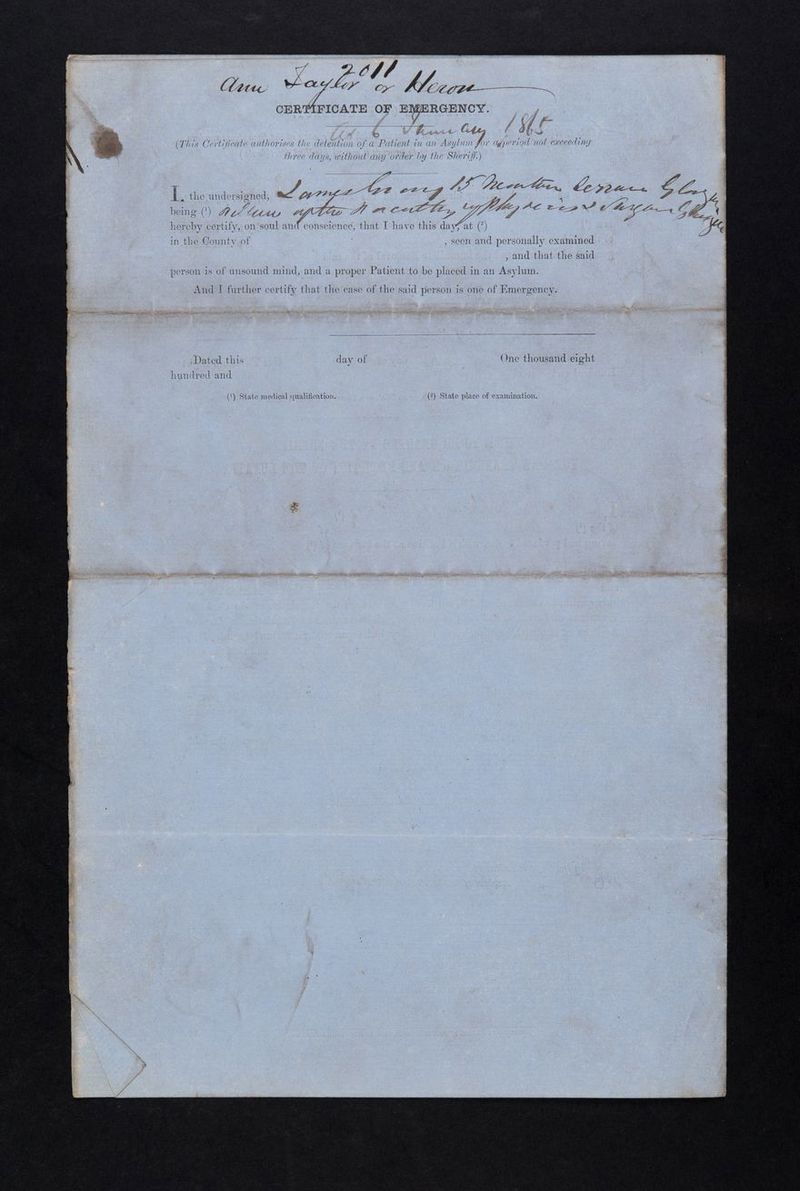 2011
Ann Taylor or Heron
CERTIFICATE OF EMERGENCY.
6 January 1865
(This Certificate authorises the detention of a Patient in an Asylum for a period not exceeding
three days, without any order by the Sheriff.)
I, the undersigned, James 15
being (¹) Fellow of the Faculty of Physicians & Surgeons Glasgow
hereby certify, on soul and conscience, that I have this day, at (²)
in the County of , seen and personally examined
, and that the said
person is of unsound mind, and a proper Patient to be placed in an Asylum.
And I further certify that the case of the said person is one of Emergency.
Dated this day of One thousand eight
hundred and
(¹) State medical qualification. (²) State place of examination.